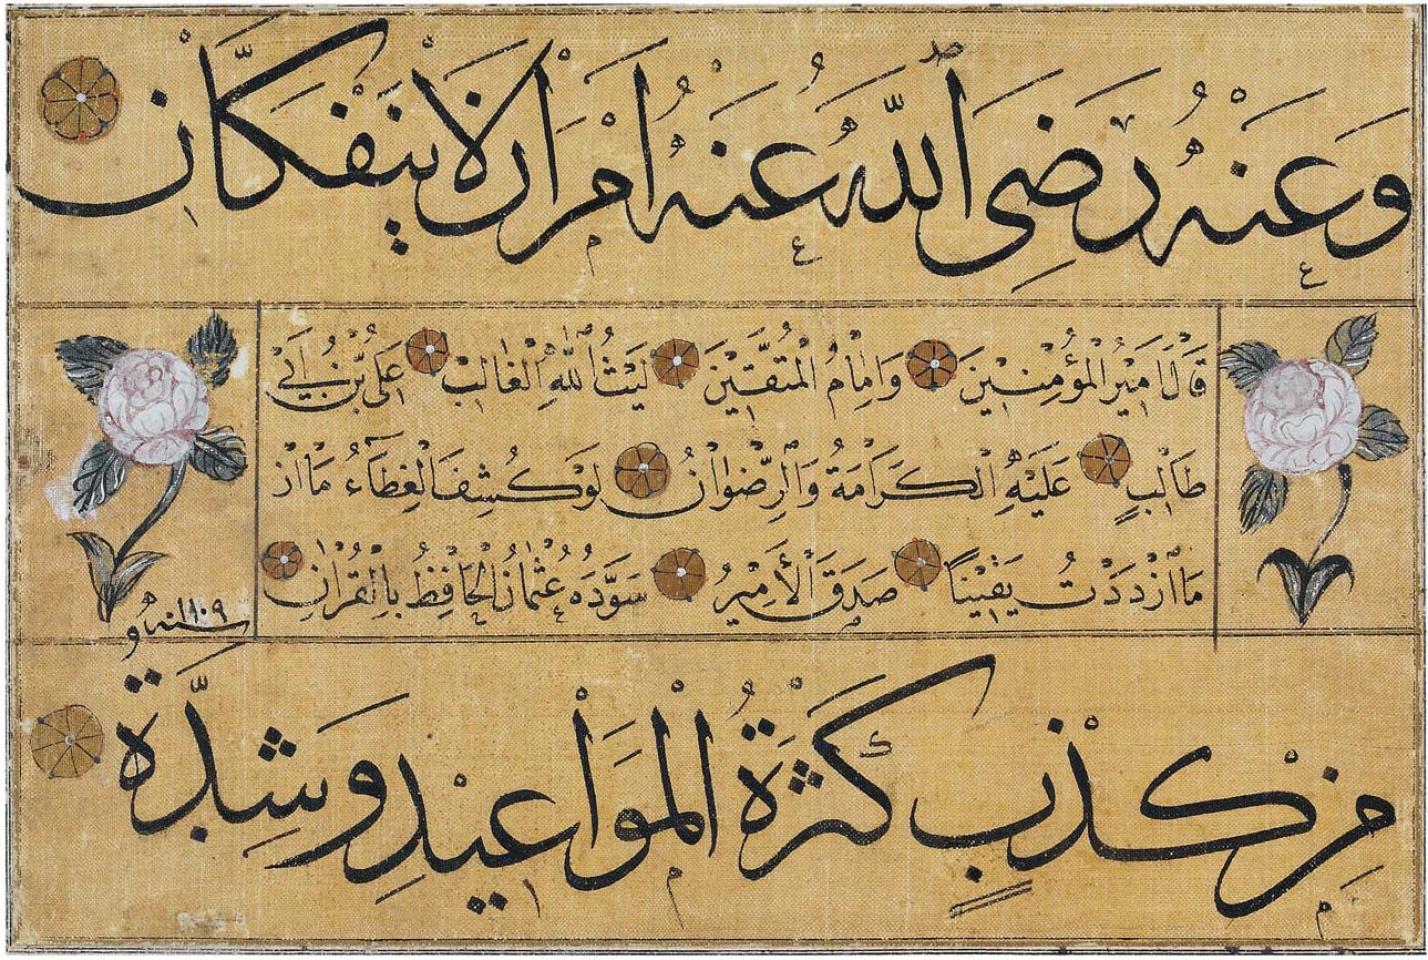 وَعَنْهُ رَضِيَ اللَّهُ عَنْهُ اَمْرَانِ لَا يَنْفَكَّانِ
قَالَ اَمِيْرُ الْمُؤْمِنِيْنَ وَاِمَامُ الْمُتَّقِيْنَ لَيْثُ اللَّهِ الْغَالِبُ عَلِىُّ بْنُ اَبِى
طَالِبٍ عَلَيْهِ الْكَرَامَةُ وَالرِّضْوَانُ لَوْ كُشِفَ الْغِطَاءُ مَا از
مَا ازْدَدْتُ يَقِيْنًا صَدَقَ الْأَمِيْرُ سَوَّدَهُ عُثْمَانُ الْحَافِظُ بِالْقُرْاٰنِ
سنه ١١٠٩
مِنْ كَذِبٍ كَثْرَةُ الْمَوَاعِيْدِ وَشِدَّةُ